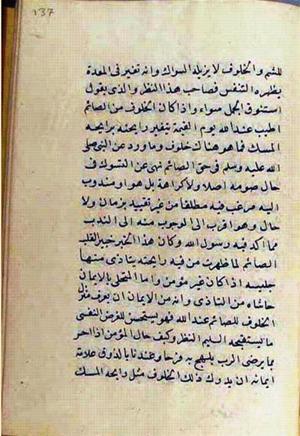 137
للشم والخلوف لا يزيله السواك وانه تغير في المعدة
يظهره التنفس فصاحب هذا النظر والذي يقول
استنوق الجمل سواء واذا كان الخلوف من الصائم
اطيب عند الله يوم القيمة يتغير رايحته برايحة
المسك فما هو هناك خلوف وما ورد عن النبي صلى
الله عليه وسلم في حق الصائم نهى عن التسوك في
حال صومه اصلا ولا كراهة بل هو امر مندوب
اليه مرغب فيه مطلقا من غير تقييد بزمان ولا
حال وهو اقرب الى الوجوب منه الى الندب
مما اكد فيه رسول الله وكان هذا الخبر جبر القلب
الصائم لما ظهرت من فيه رايحة يتاذى منها
جليسه اذا كان غير مؤمن واما المتحلي بالايمان
حاشاه من التاذي وانه من الايمان ان يعرف منزل
الخلوف للصائم عند الله فهو يستحسن للغرض النفسي
ما يستقبحه السليم النظر وكيف حال المؤمن اذا اخبر
بما يرضى الرب يبتهج به فرحا وعندنا بالذوق علامة
ايمانه ان يدرك ذلك الخلوف مثل رايحة المسك